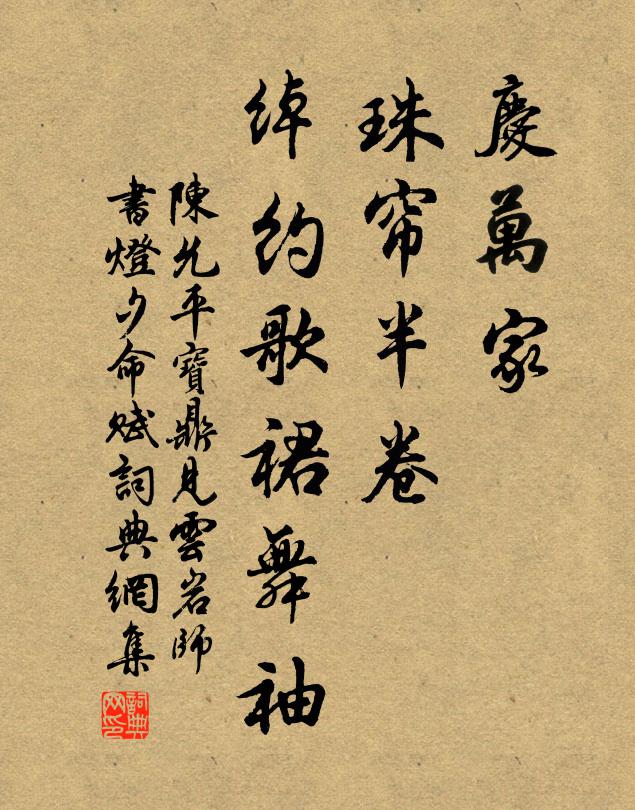 慶萬家
珠帘半卷
綽約歌裙舞袖
陳允平寶鼎見雲岩師
書燈夕命賦詞典網集
詞典网印